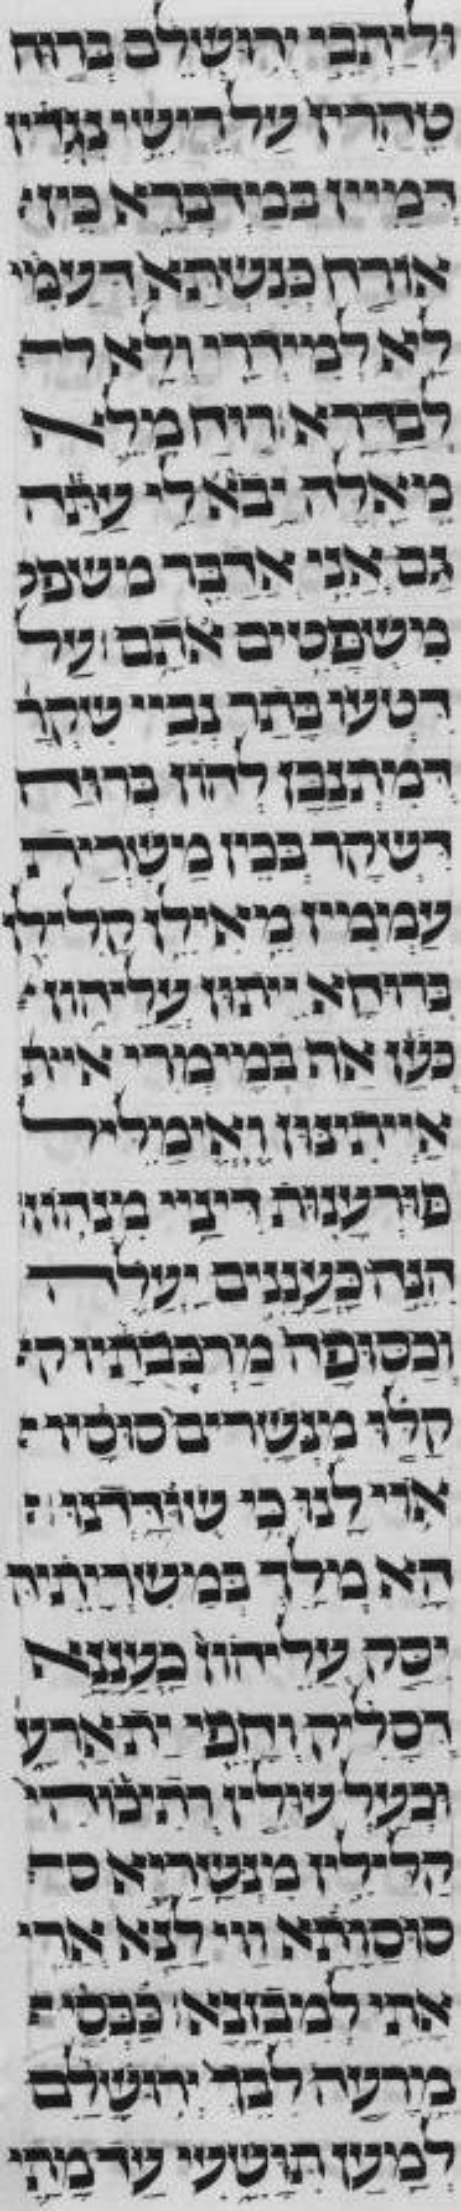 וּלְיַתְבֵי יְרוּשְׁלֵם כְּרוּחַ
טַהֲרִין עַל רֵישֵׁי נִגְדִין
דְּמַיִין בְּמַדְבְּרָא כֵּין
אוֹרַח כְּנִשְׁתָּא דְּעַמִּי
לָא לְמִידְרֵי וְלָא לה
לְבַדָּרָא רוּחַ מָלֵא
מֵאֵלֶּה יָבֹא לִי עַתָּה
גַּם אֲנִי אֲדַבֵּר משפט
מִשְׁפָּטִים אֹתָם עַל
דִּטְעוֹ בָּתַר נְבִיֵי שִׁקְרָ
דְּמִתְנַבַּן לְהוֹן בְּרוּחַ
דִּשְׁקַר בְּכֵין מַשִּׁרְיַת
עַמְמִין מֵאִילֵּן קַלִּילָן
כְּרוּחָא יֵיתוּן עֲלֵיהוֹן
כְּעַן אַף בְּמֵימְרִי איית
אַיְיתֵינוּן וְאֵימַלֵּיל
פּוּרְעָנוּת דִּינַיי מִנְּהוֹן
הִנֵּה כַּעֲנָנִים יַעֲלֶה
וְכַסּוּפָה מַרְכְּבֹתָיו ק
קַלּוּ מִנְּשָׁרִים סוּסָיו
אוֹי לָנוּ כִּי שֻׁוּדָּדְנוּ
הָא מֶלֶךְ בְּמַשִּׁרְיָתֵיהּ
יִסַּק עֲלֵיהוֹן כַּעֲנָנָא
דְּסָלֵיק וְחָפֵי יַת אַרְעָ
וּכְעַל עוּלִין רְתִיכּוֹהִי
קַלִּילִין מִנִּשְׁרַיָּא סה
סוּסְוָתֵא וַוי לַנָא אֲרֵי
אֲתֵי לְמִבְזְנָא כַּבְּסִי
מֵרָעָה לִבֵּךְ יְרוּשָׁלִַם
לְמַעַן תִּוָּשֵׁעִי עַד מָתַי